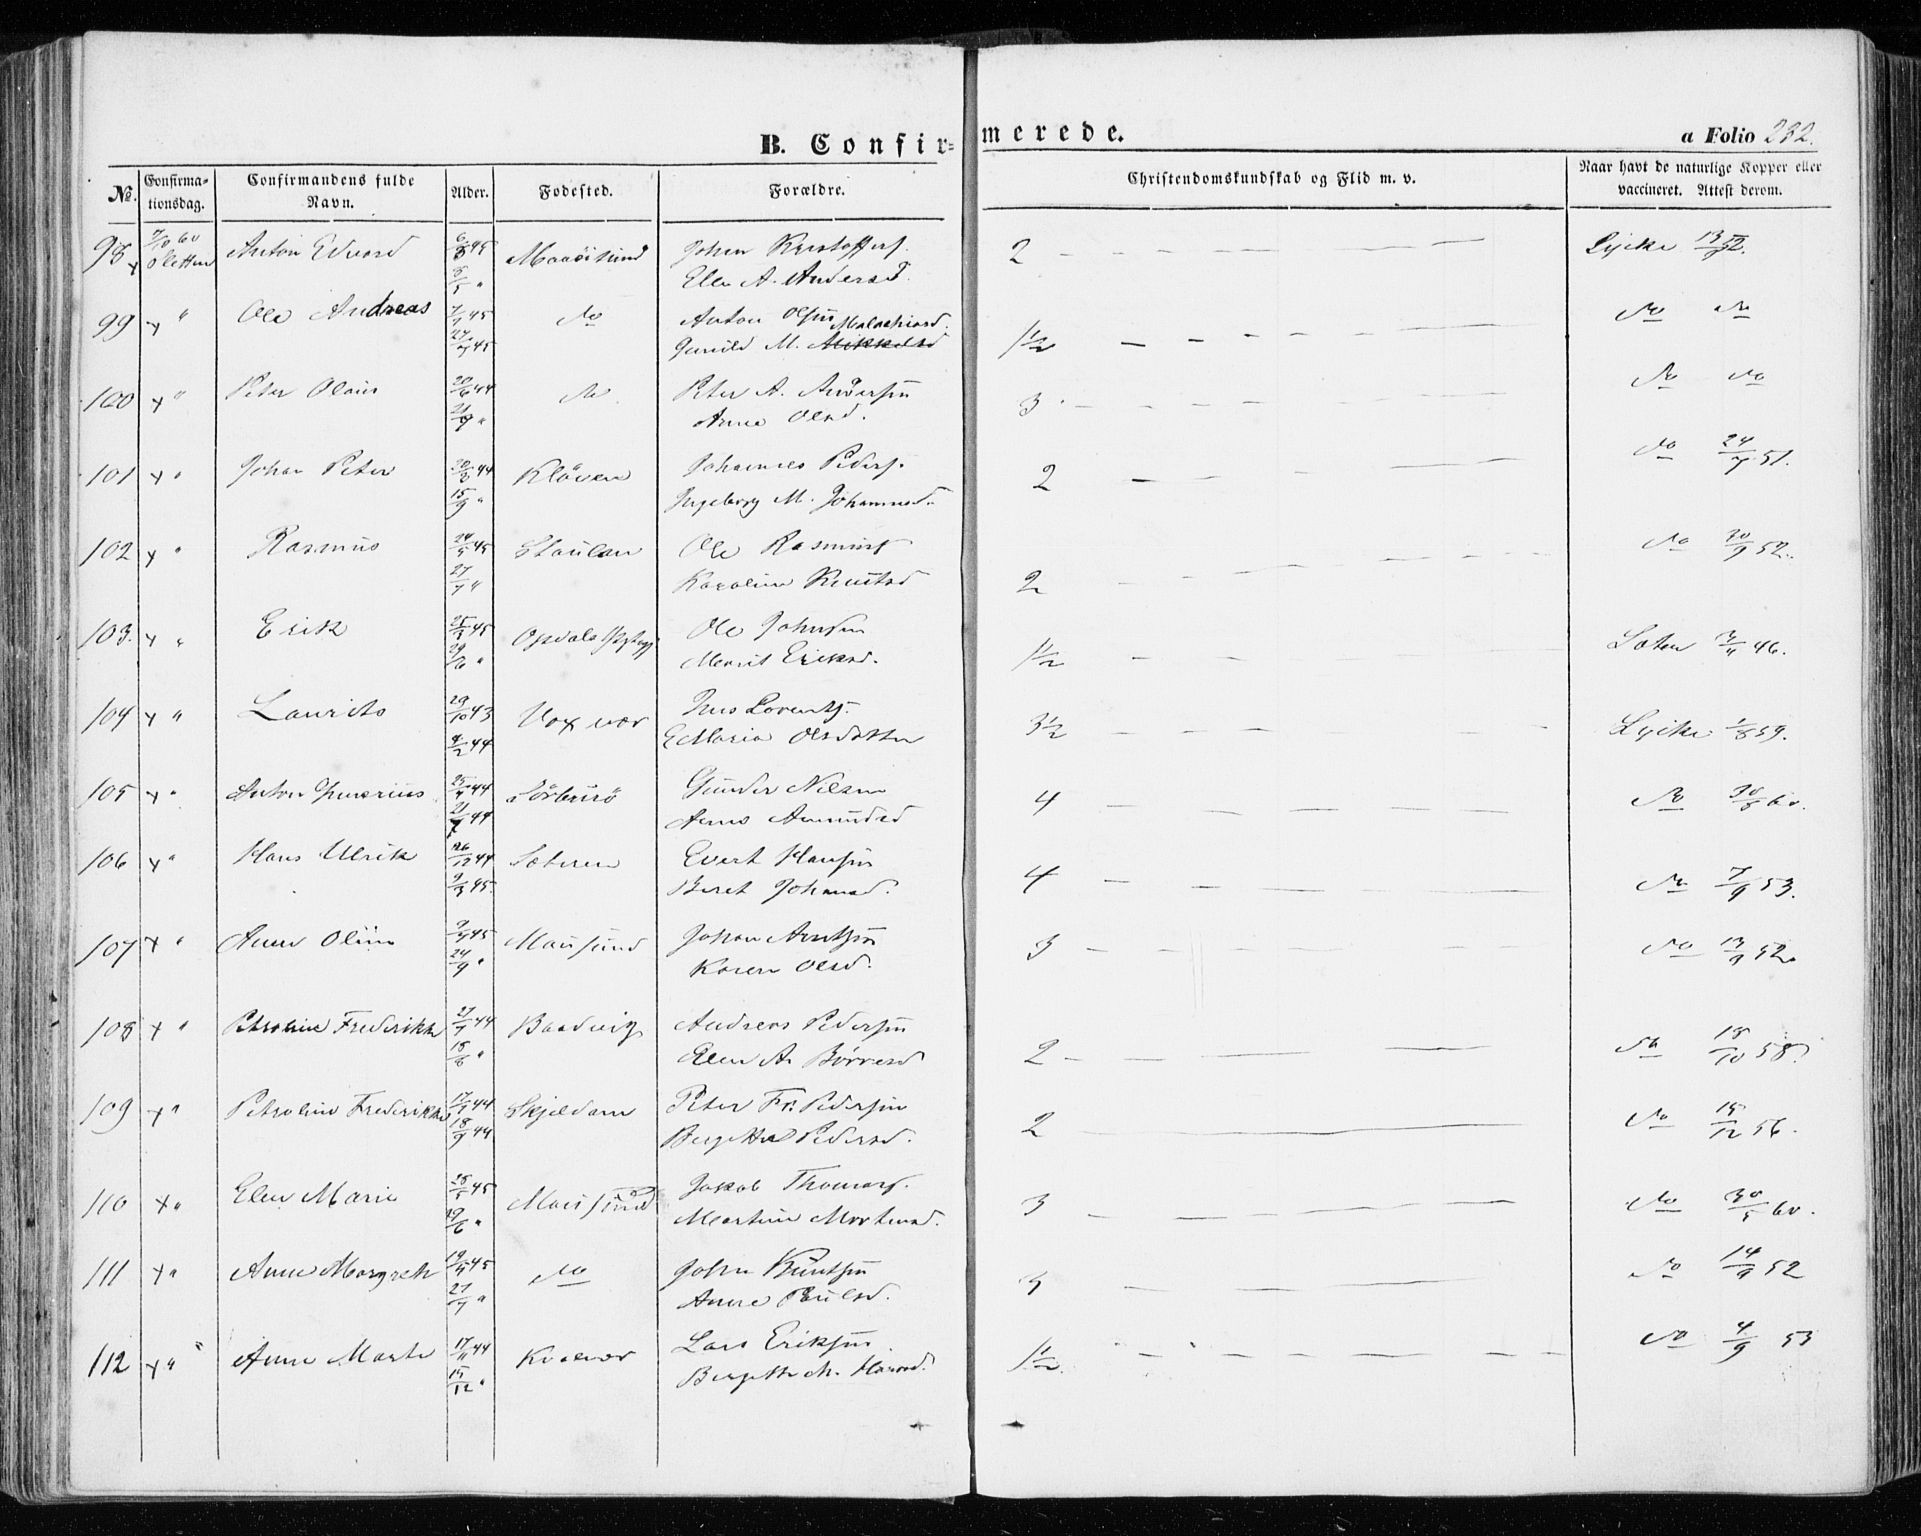 B. Confir=
merede.
a Folio 232.
No. Confirmationsdag. Confirmandens fulde Navn. Alder. Fødested. Forældre. Christendomskundskab og Flid m. v. Naar havt de naturlige Kopper eller vaccineret. Attest derom.
98 x 7/10 60 Anton Edvard 45 Johan Kristoffers. 2 Lycke 13/9 52.
Ellen A. Andersd.
99 x " Ole Andreas 45 Do Anton Olsen 1½ Do Do
Gunild M. Malachiasd. Mikkelsd
100 x " Peter Olaus 20/6 44 Do Peter A. Andersen 3 Do Do
21/9 " Anne Olsd.
101 x " Johan Peter 20/3 44 Kløven Johannes Peders. 2 Do 24/7 51.
15/9 " Ingeborg M. Johannesd.
102 x " Rasmus 24/5 45 Staulan Ole Rasmus 2 Do 30/9 52.
27/7 " Karoline Knutsd
103. x " Erik 25/3 45 Opdals Ole Johnsen 1½ Loten 46.
29/6 " Marit Eriksd.
104 x " Laurits 29/10 43 Vox vær Jens Lorents. 3½ Lycke 1/8 59.
4/2 44 E Maria Olsdatter
105 x " Anton 25/4 44 Sørburø Gunder Nilsen 4 Do 30/5 60.
21/7 44 Amundsd
106 x " Hans Ulrik 26/12 44 Sæteren Evert Hansen 4 Do 7/9 53.
9/3 45. Beret Johansd.
107 x " Anne Oline 45 Mausund Johan Arntsen 3 Do 13/9 52.
24/9 " Karen Olsd.
108 x " Petroline Frederikke 27/7 44 Baadvig Andreas Pedersen 2 Do 18/10 58.
18/8 " Elen A. Børresd
109 x " Petroline Frederikke 17/7 44 Skjeldam Peter Fr. Pedersen 2 Do 15/12 56.
18/9 44 Bergitha Pedersd.
110 x " Elen Marie 28/5 45 Mausund Jakob Thomas. 3 Do 30/5 60.
29/6 " Martine Mortensd.
111 x " Anne Margreth 19/4 45 Do John Knutsen 3 Do 14/9 52
27/7 " Anne Paulsd.
112 x " Anne Marte 17/11 44 Kvalvær Lars Eriksen 1½. Do 4/9 53
15/12 " Bergitte M. Hansd.